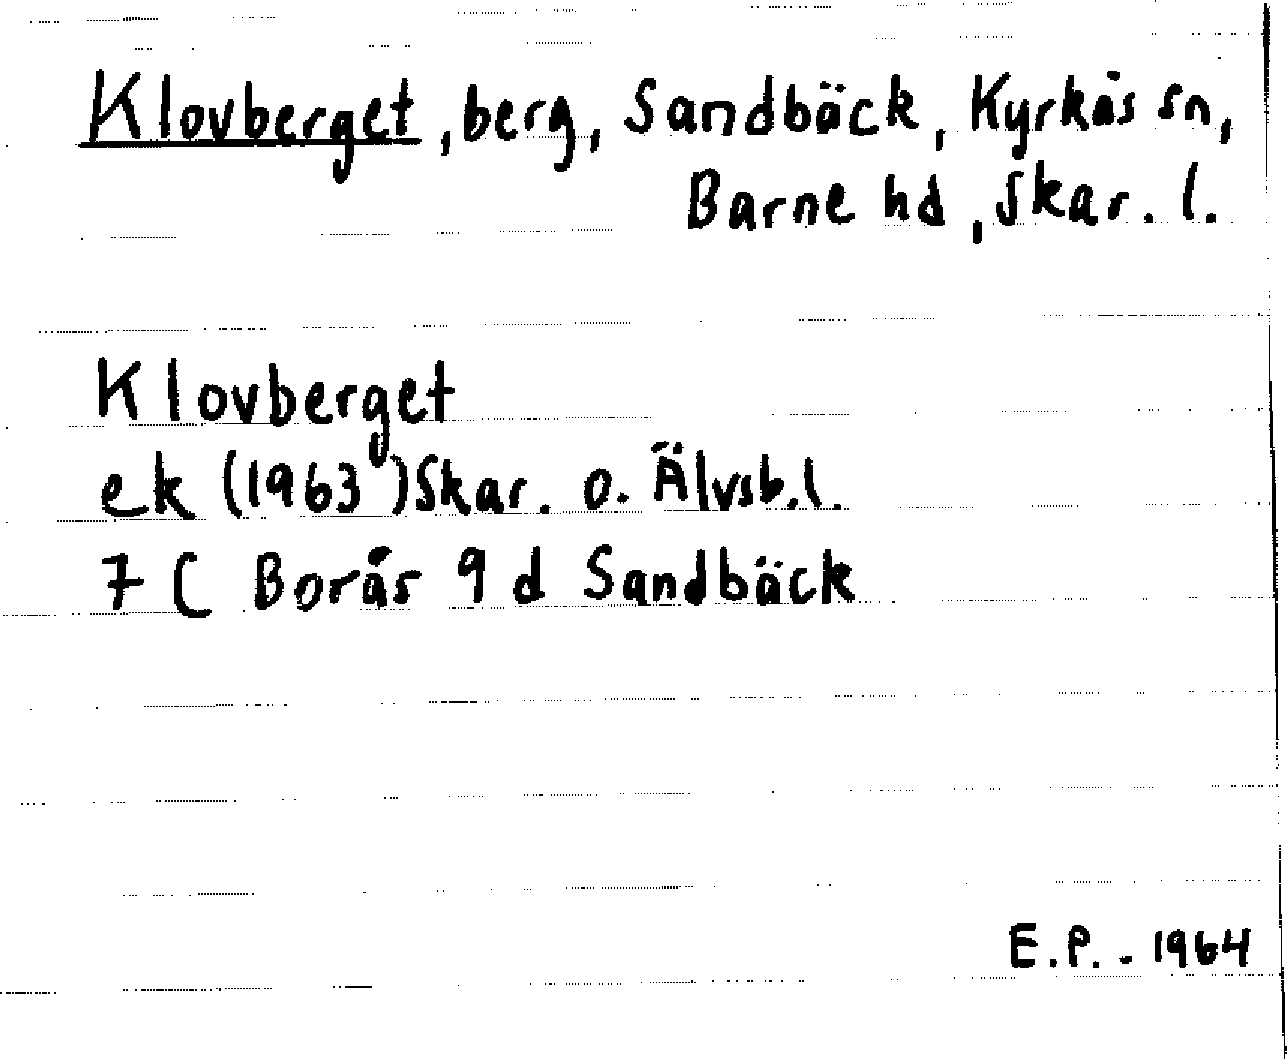 Klovberget, berg, Sandbäck, Kyrkås sn,
Barne hd, Skar. l.
Klovberget
ek (1963) Skar. o. Älvsb. l.
7 C Borås 9 d Sandbäck
E.P. - 1964